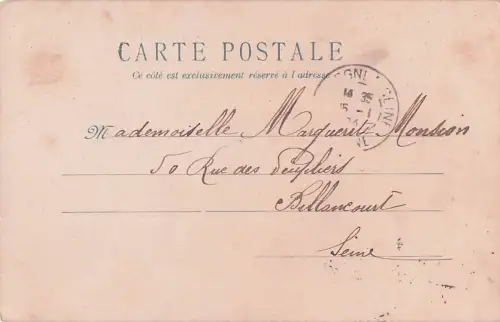 CARTE POSTALE
Ce côté est exclusivement réservé à l'adresse
Mademoiselle Marguerite
50 Rue des Peupliers
Billancourt
Seine